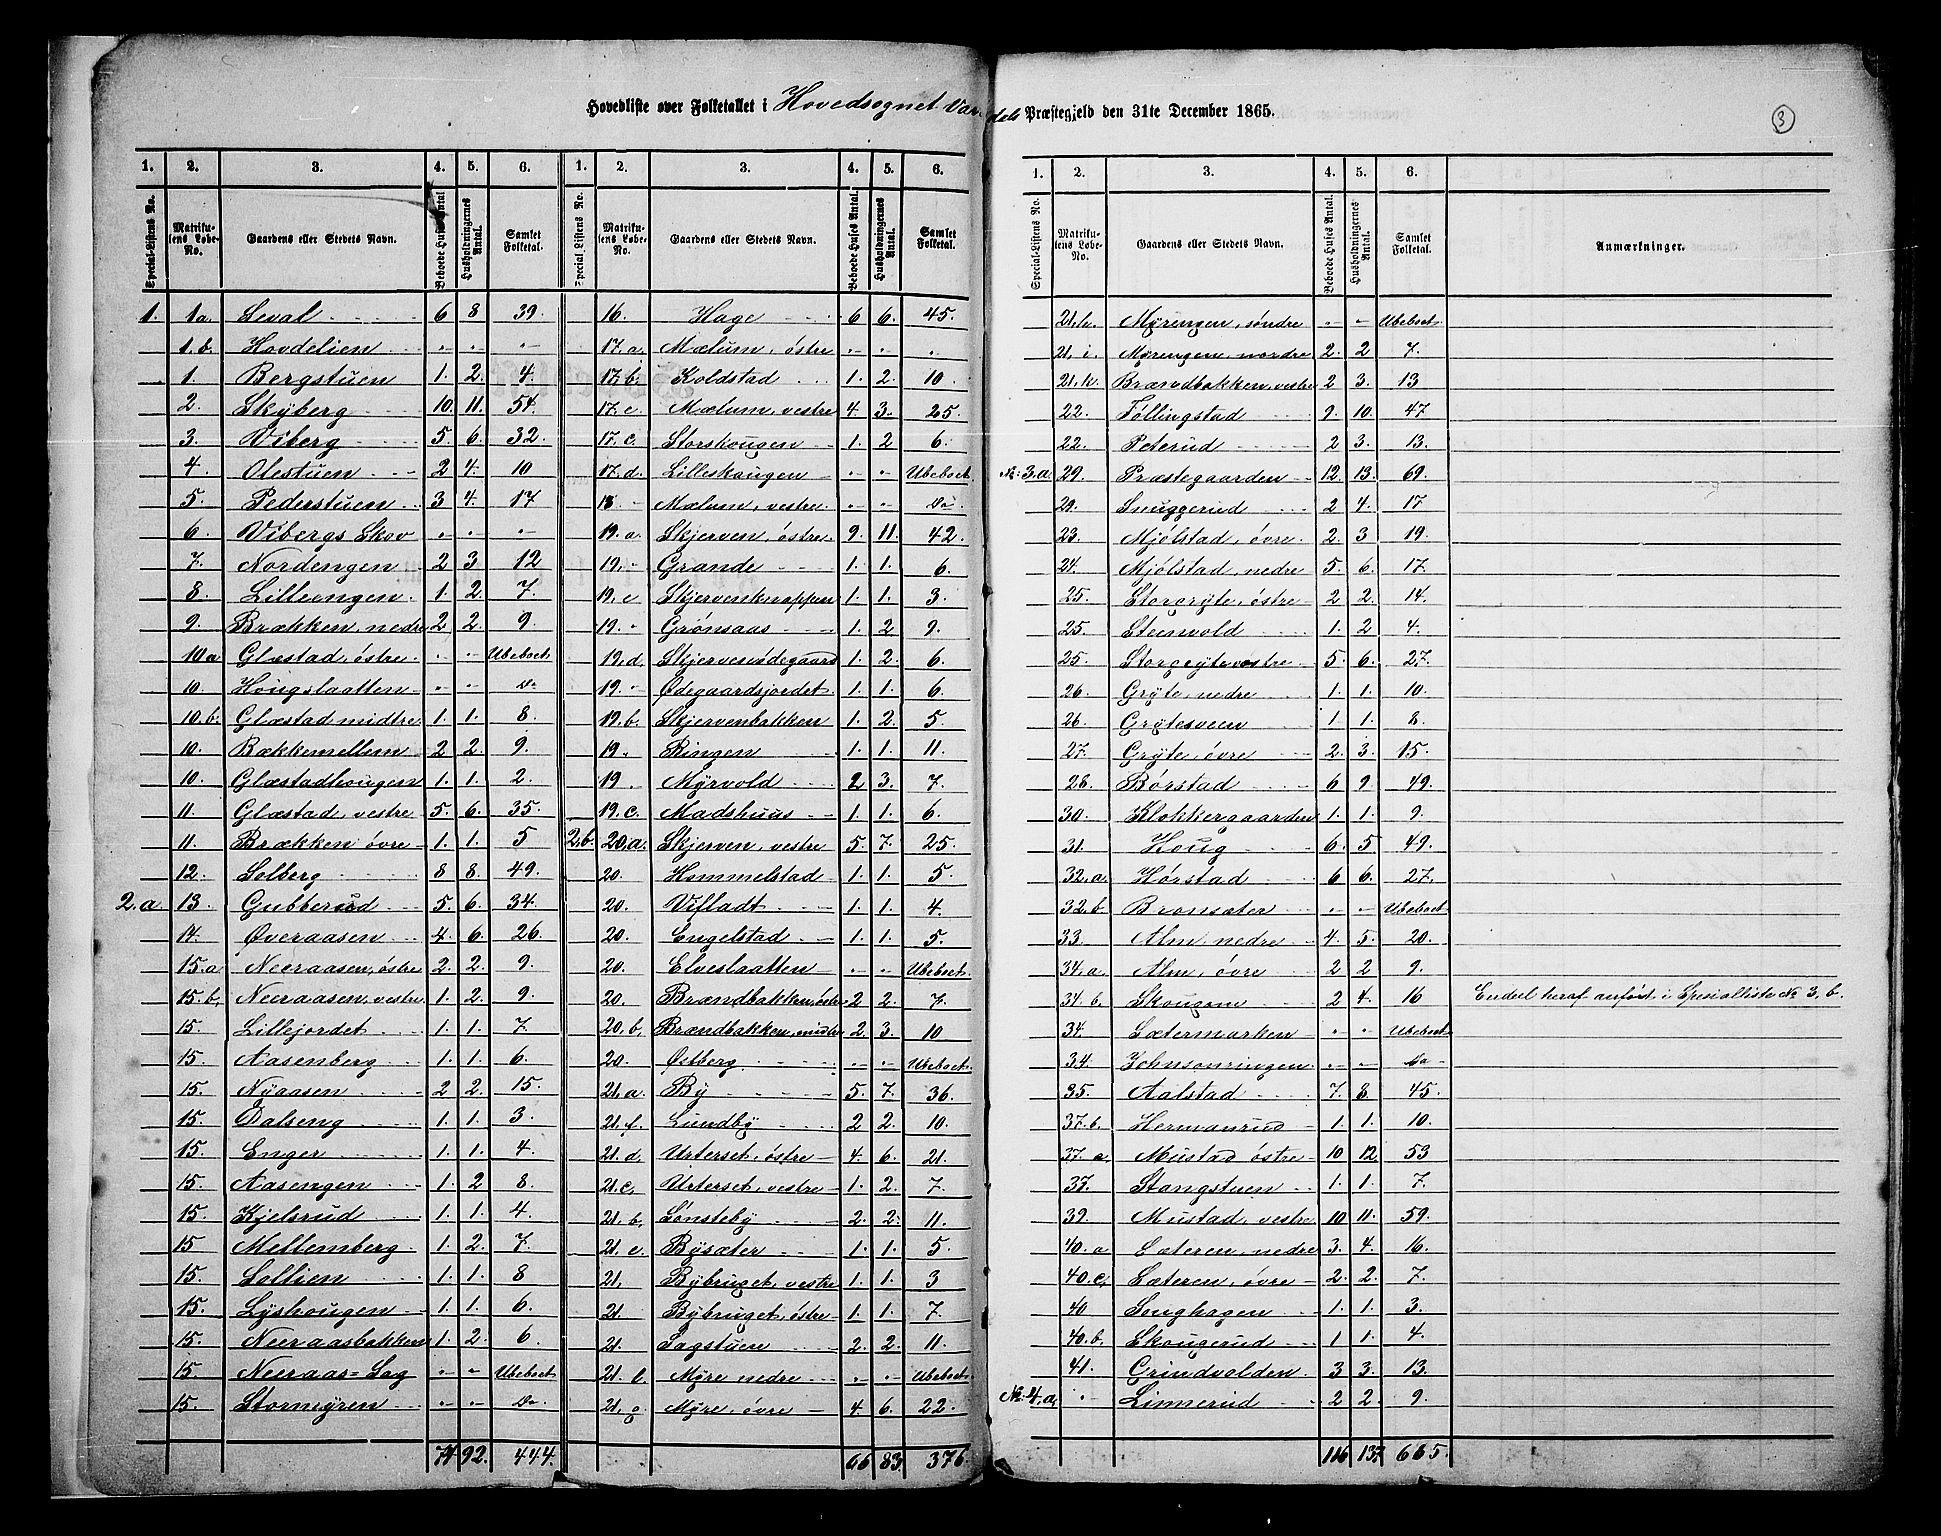 Hovedliste over Folketallet i Hovedsognet Vardals Præstegjeld den 31te December 1865.
3
1. 2. 3. 4. 5. 6. 1. 2. 3. 4. 5. 6.
Special-Listens No. Matrikulens Løbe-No. Gaardens eller Stedets Navn. Beboede Huses Antal Husholdningernes Antal. Samlet Folketal. Special-Listens No. Matrikulens Løbe-No. Gaardens eller Stedets Navn. Beboede Huses Antal. Husholdningernes Antal. Samlet Folketal.
1. 1a. Seval 6 8 39. 16. Hage 6 6. 45.
1.b. Hovdelien " " " 17.a. Mælum, östre " " "
1. Bergstuen 1. 2. 4. 17.b. Koldstad 1. 2. 10.
2. Skÿberg 10. 11. 54. 17.c. Mælum, vestre 4. 3. 25.
3. Viberg 5. 6. 32. 17.c. Storskougen 1. 2 6.
4. Olestuen 2 4. 10 17.d. Lilleskougen " " Ubeboet
5. Pederstuen 3 4. 17 18 Mælum, vestre " " Do
6. Vibergs Skov " " " 19.a. Skjerven, östre 9. 11. 42.
7. Nordengen 2 3 12 19. " Grande 1. 1. 6.
8. Lilleengen 1. 2. 7. 19.e Skjervenknappen 1. 1. 3.
9. Brækken, nedre 2 2. 9. 19. " Grønsaas 1. 2 9.
10a Glæstad, östre " " Ubeboet 19.d. Skjervenödegaard 1. 2. 6.
10. Hougslaatten " " Do 19. " Ødegaardsjordet 1. 1. 6.
10.b. Glæstad midtre 1. 1. 8. 19.b. Skjervenbakken 1. 2. 5.
10. Bækkemellem 2 2. 9. 19 " Ringen 1. 1. 11.
10. Glæstadhougen 1. 1. 2. 19 Myrvold 2 3. 7.
11. Glæstad, vestre 5. 6. 35. 19.c. Madshuus 1. 1. 6.
11. Brækken övre 1. 1. 5 2.b. 20.a. Skjerven, vestre 5. 7. 25.
12. Solberg 8 8. 49. 20. Hommelstad 1. 1. 5.
2.a. 13. Gubberud 5. 6. 34. 20. Vifladt 1. 1. 4.
14. Øveraasen 4. 6. 26. 20. Engelstad 1. 1. 5.
15.a Neeraasen, östre 2. 2. 9. 20. Elveslaatten " " Ubeboet
15.b. Neeraasen, vestre 1. 2. 9. 20. Brændbakken, östre 2 2. 7.
15. Lillejordet 1. 1. 7. 20.b. Brændbakken, midtre 2. 3. 10
15. Aasenberg 1. 1. 6. 20. Østberg " " Ubeboet
15. Nÿaasen 2 2. 15. 21.a. Bÿ 5. 7. 36.
15. Dalseng 1. 1. 3. 21.f. Lundbÿ 2 2. 10.
15. Enger 1. 1. 4. 21.d. Urterset, östre 4. 6. 21.
15. Aasengen 1. 2 8. 21.c. Urterset, vestre 1. 2. 7.
15. Kjelsrud 1. 1. 4. 21.b. Sønstebÿ 2. 2. 11.
15. Mellemberg 1. 2. 7. 21.e Bÿsæter 1. 1. 5
15. Sollien 1. 1. 8 21. Bÿbruget, vestre 1. 1. 3
15. Lÿshougen 1. 1. 6. 21. Bÿbruget, östre 1. 1. 7.
15. Neeraasbakken 1. 2. 6. 21. Sagstuen 2. 2. 11.
15. Neeraas-Sag " " Ubeboet 21.l. Mÿre nedre " " Ubeboet
15. Stormÿren " " Do 21.g. Mÿre, övre 4. 6. 22.
74 92. 444. 66 83. 376.
1. 2. 3. 4. 5. 6. 7.
Special-Listens No. Matrikulens Løbe-No. Gaardens eller Stedets Navn. Beboede Huses Antal. Husholdningernes Antal. Samlet Folketal. Anmærkninger.
21.h. Mÿrengen, söndre " " Ubeboet
21.i. Mÿrengen, nordre 2. 2 7.
21.k. Brændbakken, vestre 2 3. 13
22. Föllingstad 9. 10. 47
22. Peterud 2 3. 13.
No 3.a. 29. Præstegaarden 12. 13. 69.
29. Snuggerud 2 4. 17
23. Mjölstad, övre 2. 3 19.
24. Mjölstad, nedre 5. 6. 17.
25. Storgrÿte, östre 2 2. 14.
25. Steenvold 1. 2 4.
25. Storgrÿte vestre 5. 6. 27.
26. Grÿte, nedre 1. 1. 10.
26. Grÿtesveen 1 1. 8.
27. Grÿte, övre 2. 3. 15.
28. Børstad 6 9. 49.
30. Klokkergaarden 1. 1. 9.
31. Houg 6. 5 49.
32.a. Hørstad 6 6. 27.
32.b. Bronsæter " " Ubeboet
33. Alm, nedre 4. 5. 20.
34.a. Alm, övre 2 2 9.
34.b. Skougene 2 4. 16 Endeel heraf anført i Spesialliste No 3, b.
34. Sætermarken " " Ubeboet
34. Johnsonringen " " Do
35. Aalstad 7. 8. 45.
37.b. Hermanrud 1. 1. 10.
37.a. Mustad östre 10 12. 53
37. Stangstuen 1. 1. 7.
39. Mustad, vestre 10 11. 59.
40.a Sæteren, nedre 3. 4. 16.
40.c. Sæteren, övre 2. 2. 7.
40 Songhagen 1. 1. 3.
40.b. Skougerud 1 1. 4.
41. Grindvolden 3 3. 13.
No 4.a. " Linnerud 2 2. 9.
116 137 665.